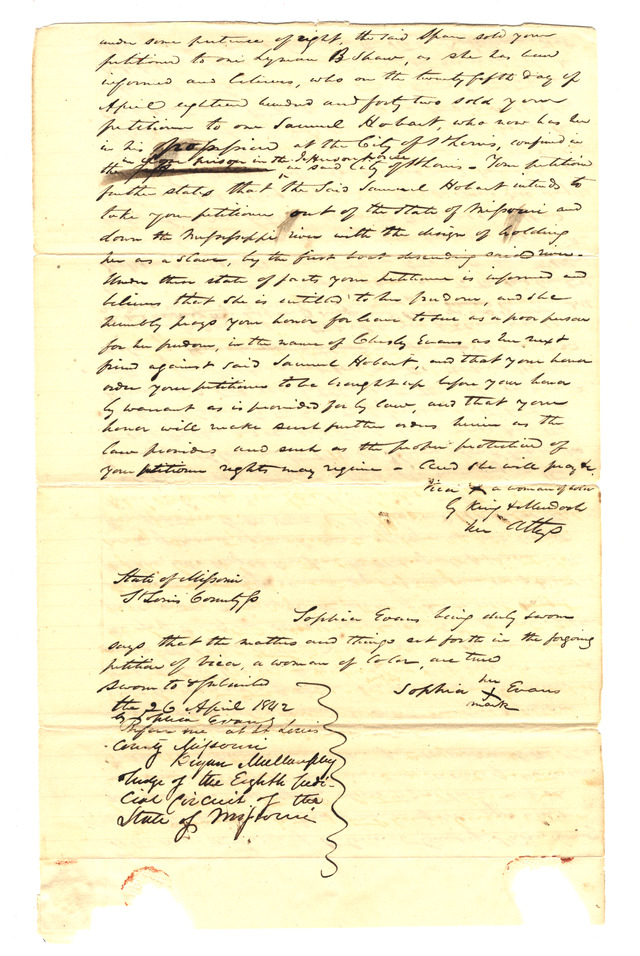 under some pretence of right, the said Spear sold your
petitioner to one Lyman B Shaw, as she has been
informed and believes, who on the twenty fifth day of
April eighteen hundred and forty two sold your
petitioner to one Samuel Hobart, who now has her
in his possession at the City of St Louis, confined in
the in said City of St Louis - Your petitioner
further states that the said Samuel Hobart intends to
take your petitioner out of the State of Missouri and
down the Mississippi river with the design of holding
her as a slave, by the first boat descending said river -
Under these state of facts your petitioner is informed and
believes that she is entitled to her freedom, and she
humbly prays your honor for leave to sue as a poor person
for her freedom, in the name of Chesly Evans as her next
friend against said Samuel Hobart, and that your honor
order your petitioner to be brought up before your honor
by warrant as is provided for by law, and that your
honor will make such further orders herein as the
law provides and such as the proper protection of
your petitioner rights may require - And she will pray &c.
Vica X a woman of color
by King & Murdoch
her Attys
State of Missouri
St Louis County ss
Sophia Evans being duly sworn
says that the matters and things set forth in the forgoing
petition of Vica, a woman of color, are true
Sophia her X mark Evans
sworn to & subscribed
the 26 April 1842
by Sophia Evans
Before me at St. Louis
County Missouri
Bryan Mullanphy
Judge of the Eighth Judi-
cial Circuit of the
State of Missouri